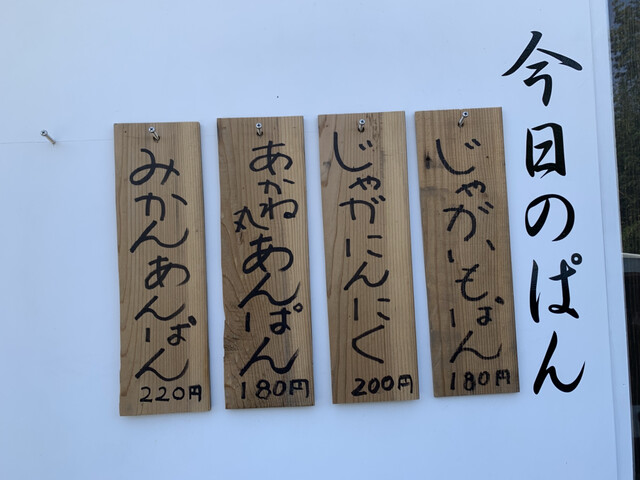 今日のぱん
じゃがいもぱん
180円
じゃがにんにく
200円
あかね
丸あんぱん
180円
みかんあんぱん
220円